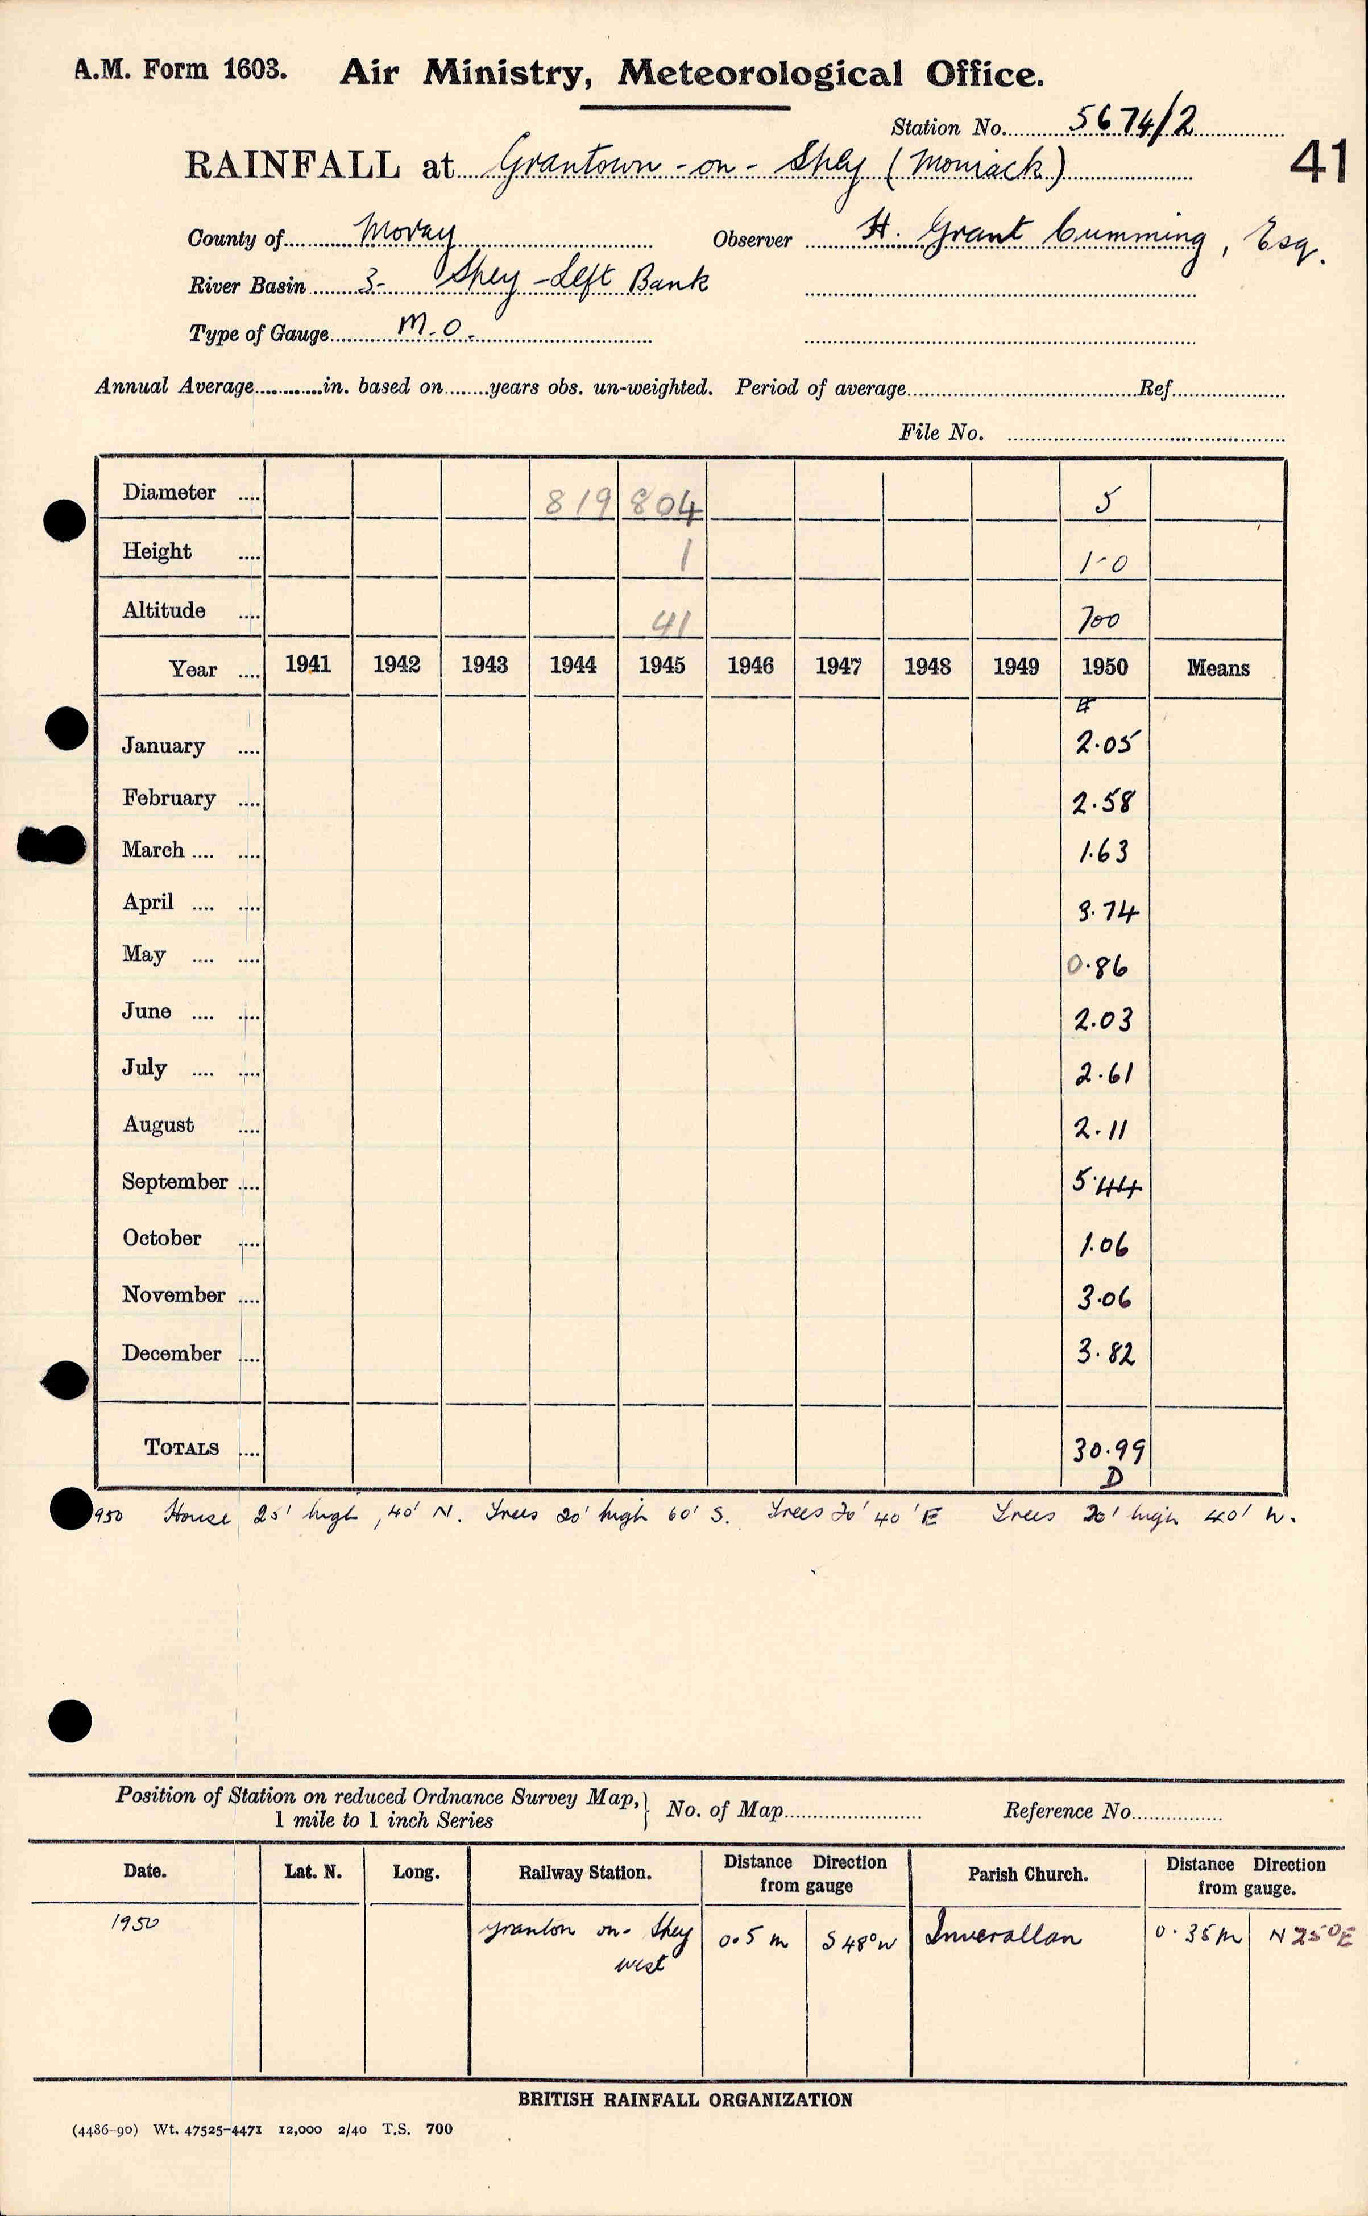 A.M. Form 1603. Air Ministry, Meteorological Office.
Station No. 5674/2
RAINFALL at Grantown-on-Spey (Moniack) 41
County of Moray Observer H. Grant Cumming, Esq.
River Basin 3- Spey - Left Bank
Type of Gauge M.O.
Annual Average in. based on years obs. un-weighted. Period of average Ref
File No.
Diameter 819 804 5
Height 1 1-0
Altitude 41 700
Year 1941 1942 1943 1944 1945 1946 1947 1948 1949 1950 Means
January 2.05
February 2.58
March 1.63
April 3.74
May 0.86
June 2.03
July 2.61
August 2.11
September 5.44
October 1.06
November 3.06
December 3.82
TOTALS 30.99
D
950 House 25' high, 40' N. Trees 20' high 60' S. Trees 20' 40' E Trees 20' high 40' W.
Position of Station on reduced Ordnance Survey Map, 1 mile to 1 inch Series No. of Map Reference No.
Date. Lat. N. Long. Railway Station. Distance Direction from gauge Parish Church. Distance Direction from gauge.
1950 Granton on-Spey west 0.5 m S 48° W Inverallan 0.35 m N 25° E
BRITISH RAINFALL ORGANIZATION
(4486-90) Wt. 47525-4471 12,000 2/40 T.S. 700